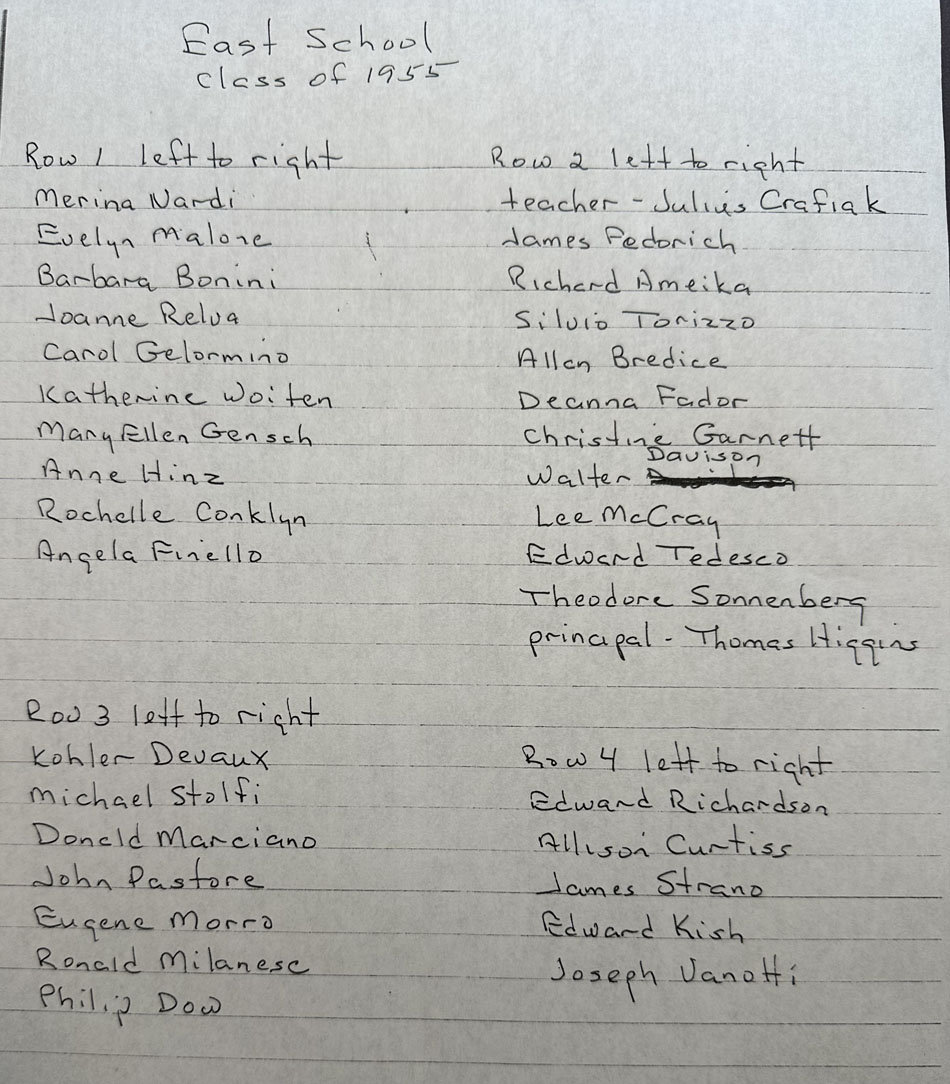 East School
class of 1955
Row 1 left to right
Merina Nardi
Evelyn Malone
Barbara Bonini
Joanne Relva
Carol Gelormino
Katherine Woiten
Mary Ellen Gensch
Anne Hinz
Rochelle Conklyn
Angela Finello
Row 2 left to right
teacher - Julius Crafiak
James Fedorich
Richard Ameika
Silvio Torizzo
Allen Bredice
Deanna Fador
Christine Garnett
Walter Davison
Lee McCray
Edward Tedesco
Theodore Sonnenberg
principal - Thomas Higgins
Row 3 left to right
Kohler Devaux
Michael Stolfi
Donald Marciano
John Pastore
Eugene Morro
Ronald Milanese
Philip Dow
Row 4 left to right
Edward Richardson
Allison Curtiss
James Strano
Edward Kish
Joseph Vanotti